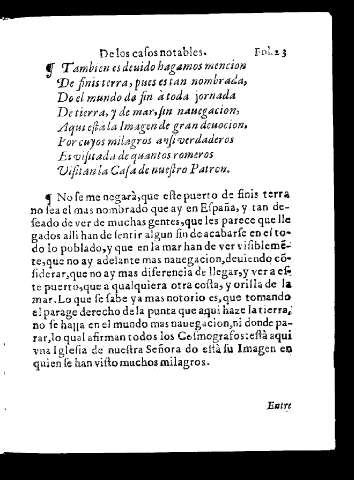 De los casos notables. Fol. 23
¶ Tambien es deuido hagamos mencion
De finis terra, pues es tan nombrada,
Do el mundo da fin à toda jornada
De tierra, y de mar, sin nauegacion,
Aqui està la Imagen de gran deuocion,
Por cuyos milagros ansi verdaderos
Es visitada de quantos romeros
Visitan la Casa de nuestro Patron.
¶ No se me negarà, que este puerto de finis terra
no sea el mas nombrado que ay en España, y tan de-
seado de ver de muchas gentes, que les parece que lle
gados alli han de sentir algun fin de acabarse en el to-
do lo poblado, y que en la mar han de ver visiblemẽ-
te, que no ay adelante mas nauegacion, deuiendo cõ-
siderar, que no ay mas diferencia de llegar, y ver a es-
te puerto, que a qualquiera otra costa, y orilla de la
mar. Lo que se sabe ya mas notorio es, que tomando
el parage derecho de la punta que aqui haze la tierra,
no se halla en el mundo mas nauegacion, ni donde pa-
rar, lo qual afirman todos los Cosmografos: està aqui
vna Iglesia de nuestra Señora do està su Imagen en
quien se han visto muchos milagros.
Entre